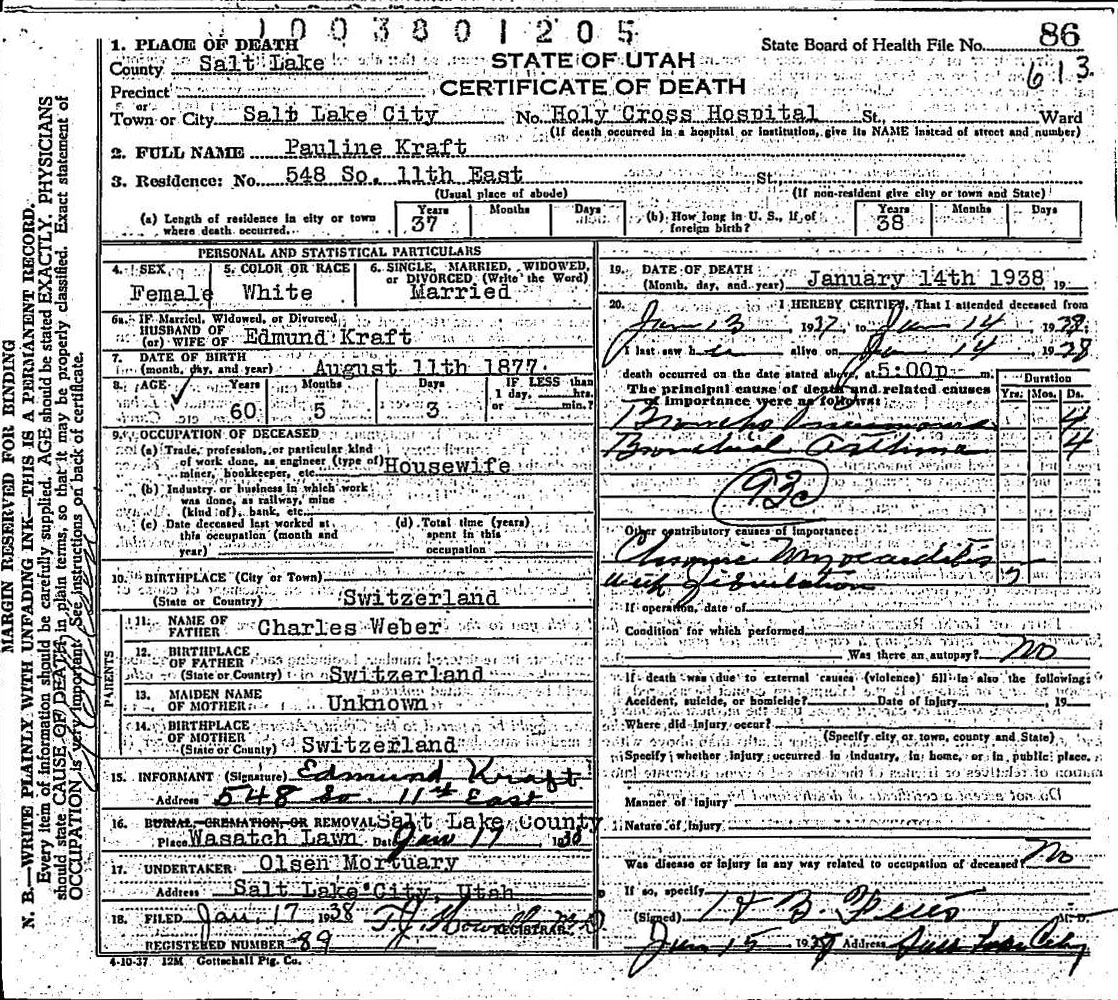 1003801205
1. PLACE OF DEATH
County Salt Lake
Precinct
or
Town or City Salt Lake City No. Holy Cross Hospital St., Ward
(If death occurred in a hospital or institution, give its NAME instead of street and number)
STATE OF UTAH
CERTIFICATE OF DEATH
State Board of Health File No. 86
613
2. FULL NAME Pauline Kraft
3. Residence: No. 548 So. 11th East St.
(Usual place of abode) (If non-resident give city or town and State)
(a) Length of residence in city or town where death occurred. Years 37 Months Days
(b) How long in U. S., if of foreign birth? Years 38 Months Days
PERSONAL AND STATISTICAL PARTICULARS
4. SEX 5. COLOR OR RACE 6. SINGLE, MARRIED, WIDOWED, or DIVORCED (Write the Word)
Female White Married
6a. IF Married, Widowed, or Divorced
HUSBAND OF
(or) WIFE OF Edmund Kraft
7. DATE OF BIRTH
(month, day, and year) August 11th 1877
8. AGE Years Months Days IF LESS than
1 day, hrs.
or min.?
60 5 3
9. OCCUPATION OF DECEASED
(a) Trade, profession, or particular kind
of work done, as engineer (type of) Housewife
miner, bookkeeper, etc.
(b) Industry or business in which work
was done, as railway, mine
(kind of), bank, etc.
(c) Date deceased last worked at
this occupation (month and
year)
(d) Total time (years)
spent in this
occupation
10. BIRTHPLACE (City or Town)
(State or Country) Switzerland
PARENTS
11. NAME OF
FATHER Charles Weber
12. BIRTHPLACE
OF FATHER
(State or Country) Switzerland
13. MAIDEN NAME
OF MOTHER Unknown
14. BIRTHPLACE
OF MOTHER
(State or Country) Switzerland
15. INFORMANT (Signature) Edmund Kraft
Address 548 So. 11th East
16. BURIAL, CREMATION, OR REMOVAL Salt Lake County
Place Wasatch Lawn Date Jan 17, 1938
17. UNDERTAKER Olsen Mortuary
Address Salt Lake City, Utah
18. FILED Jan. 17 1938 T. J. M D
REGISTRAR
REGISTERED NUMBER 89
4-10-37 12M Gottschall Ptg. Co.
19. DATE OF DEATH
(Month, day, and year) January 14th 1938 19
20. I HEREBY CERTIFY, That I attended deceased from
Jan 13 1937, to Jan 14 1938
I last saw her alive on Jan 14, 1938
death occurred on the date stated above, at 5:00p m.
The principal cause of death and related causes
of importance were as follows:
Duration
Yrs. Mos. Ds.
Broncho Pneumonia 4
Bronchial Asthma 4
93c
Other contributory causes of importance:
Chronic Myocarditis
with fibrillation 5
If operation, date of
Condition for which performed
Was there an autopsy? No
If death was due to external causes (violence) fill in also the following:
Accident, suicide, or homicide? Date of injury 19
Where did injury occur?
(Specify city or town, county and State)
Specify whether injury occurred in industry, in home, or in public place.
Manner of injury
Nature of injury
Was disease or injury in any way related to occupation of deceased? No
If so, specify
(Signed) H B. M. D.
Jan 15 1937 Address Salt Lake City
MARGIN RESERVED FOR BINDING
N. B.—WRITE PLAINLY WITH UNFADING INK—THIS IS A PERMANENT RECORD.
Every item of information should be carefully supplied. AGE should be stated EXACTLY. PHYSICIANS
should state CAUSE OF DEATH in plain terms, so that it may be properly classified. Exact statement of
OCCUPATION is very important. See instructions on back of certificate.